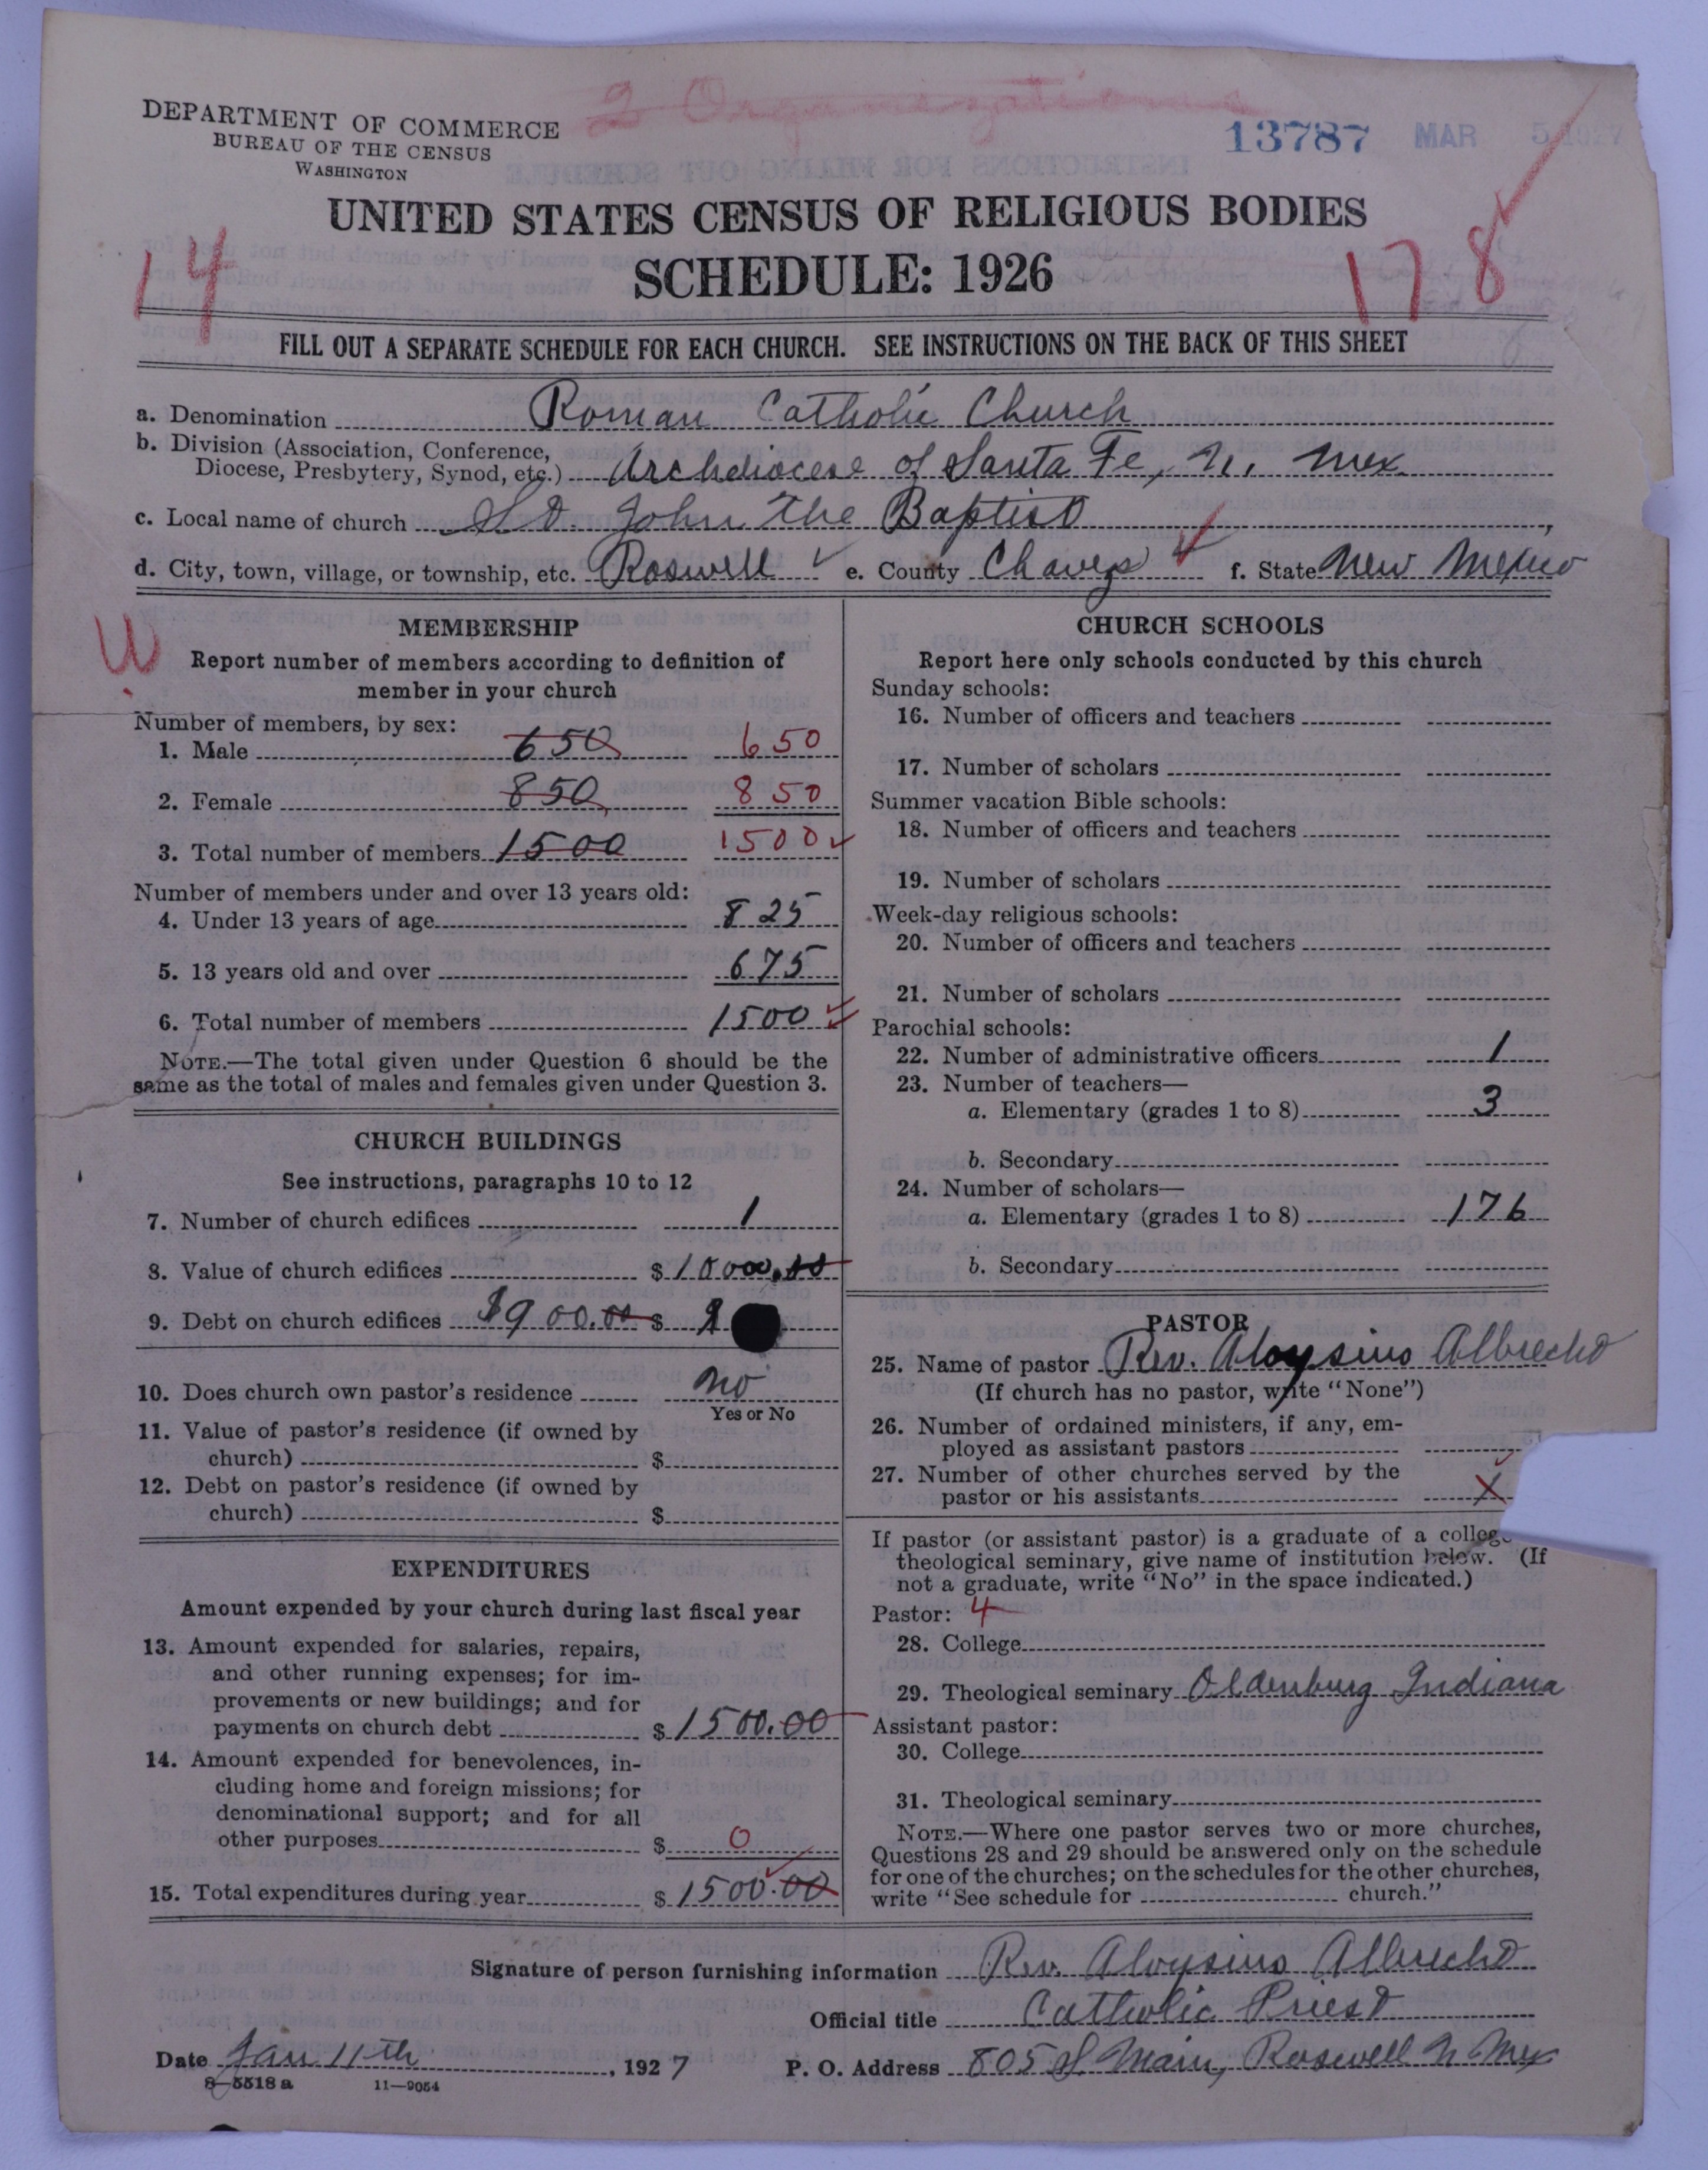 2 Organizations
DEPARTMENT OF COMMERCE
BUREAU OF THE CENSUS
WASHINGTON
13787 MAR 5 1927
UNITED STATES CENSUS OF RELIGIOUS BODIES
SCHEDULE: 1926
14
178
FILL OUT A SEPARATE SCHEDULE FOR EACH CHURCH. SEE INSTRUCTIONS ON THE BACK OF THIS SHEET
a. Denomination Roman Catholic Church
b. Division (Association, Conference,
Diocese, Presbytery, Synod, etc.) Archdiocese of Santa Fe, N. Mex
c. Local name of church St. John the Baptist
d. City, town, village, or township, etc. Roswell e. County Chaves f. State New Mexico
W
MEMBERSHIP
Report number of members according to definition of
member in your church
Number of members, by sex:
1. Male 650 650
2. Female 850 850
3. Total number of members 1500 1500
Number of members under and over 13 years old:
4. Under 13 years of age 825
5. 13 years old and over 675
6. Total number of members 1500
NOTE.—The total given under Question 6 should be the
same as the total of males and females given under Question 3.
CHURCH BUILDINGS
See instructions, paragraphs 10 to 12
7. Number of church edifices 1
8. Value of church edifices $ 10000.00
9. Debt on church edifices $900.00 $
10. Does church own pastor's residence no
Yes or No
11. Value of pastor's residence (if owned by
church) $
12. Debt on pastor's residence (if owned by
church) $
EXPENDITURES
Amount expended by your church during last fiscal year
13. Amount expended for salaries, repairs,
and other running expenses; for im-
provements or new buildings; and for
payments on church debt $ 1500.00
14. Amount expended for benevolences, in-
cluding home and foreign missions; for
denominational support; and for all
other purposes $ 0
15. Total expenditures during year $ 1500.00
CHURCH SCHOOLS
Report here only schools conducted by this church
Sunday schools:
16. Number of officers and teachers
17. Number of scholars
Summer vacation Bible schools:
18. Number of officers and teachers
19. Number of scholars
Week-day religious schools:
20. Number of officers and teachers
21. Number of scholars
Parochial schools:
22. Number of administrative officers 1
23. Number of teachers—
a. Elementary (grades 1 to 8) 3
b. Secondary
24. Number of scholars—
a. Elementary (grades 1 to 8) 176
b. Secondary
PASTOR
25. Name of pastor Rev. Aloysius Albrecht
(If church has no pastor, write "None")
26. Number of ordained ministers, if any, em-
ployed as assistant pastors
27. Number of other churches served by the
pastor or his assistants X
If pastor (or assistant pastor) is a graduate of a college
theological seminary, give name of institution below. (If
not a graduate, write "No" in the space indicated.)
Pastor: 4
28. College
29. Theological seminary Oldenburg Indiana
Assistant pastor:
30. College
31. Theological seminary
NOTE.—Where one pastor serves two or more churches,
Questions 28 and 29 should be answered only on the schedule
for one of the churches; on the schedules for the other churches,
write "See schedule for church."
Signature of person furnishing information Rev. Aloysius Albrecht
Official title Catholic Priest
Date Jan 11th, 1927 P. O. Address 805 S. Main, Roswell N Mex
8—5518 a 11—9054